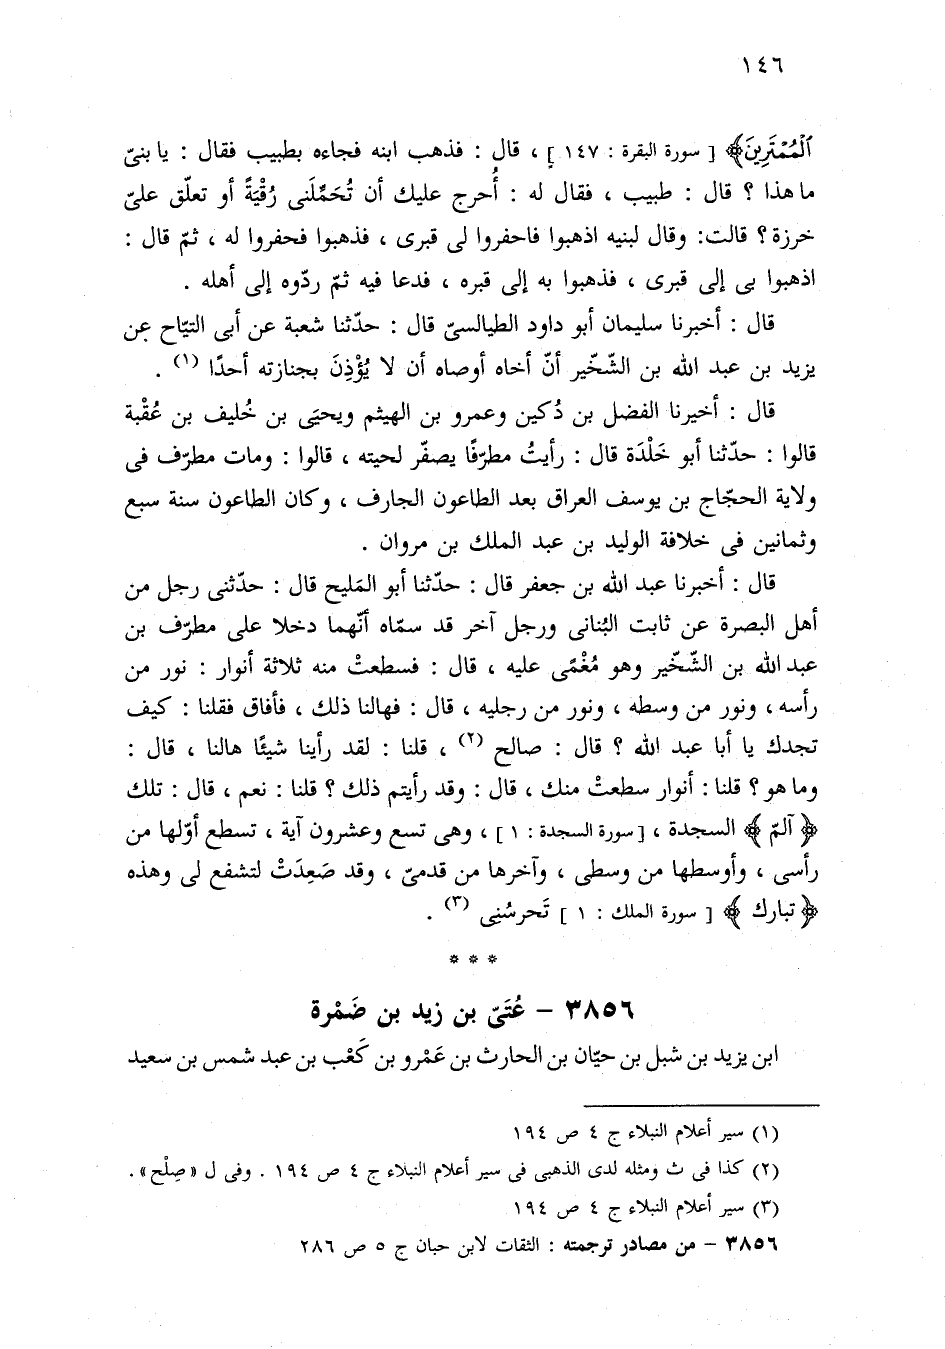 ١٤٦
ٱلْمُمْتَرِينَ﴾ [ سورة البقرة : ١٤٧ ] ، قال : فذهب ابنه فجاءه بطبيب فقال : يا بنىّ
ما هذا ؟ قال : طبيب ، فقال له : أُحرج عليك أن تُحَمِّلَنى رُقْيَةً أو تعلّق علىّ
خرزة ؟ قالت: وقال لبنيه اذهبوا فاحفروا لى قبرى ، فذهبوا فحفروا له ، ثمّ قال :
اذهبوا بى إلى قبرى ، فذهبوا به إلى قبره ، فدعا فيه ثمّ ردّوه إلى أهله .
قال : أخبرنا سليمان أبو داود الطيالسىّ قال : حدّثنا شعبة عن أبى التيّاح عن
يزيد بن عبد الله بن الشّخّير أنّ أخاه أوصاه أن لا يُؤْذِنَ بجنازته أحدًا (١) .
قال : أخبرنا الفضل بن دُكين وعمرو بن الهيثم ويحيَى بن خُليف بن عُقْبة
قالوا : حدّثنا أبو خَلْدَة قال : رأيتُ مطرّفًا يصفّر لحيته ، قالوا : ومات مطرّف فى
ولاية الحجّاج بن يوسف العراق بعد الطاعون الجارف ، وكان الطاعون سنة سبع
وثمانين فى خلافة الوليد بن عبد الملك بن مروان .
قال : أخبرنا عبد الله بن جعفر قال : حدّثنا أبو المَليح قال : حدّثنى رجل من
أهل البصرة عن ثابت البُنانى ورجل آخر قد سمّاه أنّهما دخلا على مطرّف بن
عبد الله بن الشّخّير وهو مُغْمًى عليه ، قال : فسطعتْ منه ثلاثة أنوار : نور من
رأسه ، ونور من وسطه ، ونور من رجليه ، قال : فهالنا ذلك ، فأفاق فقلنا : كيف
تجدك يا أبا عبد الله ؟ قال : صالح (٢) ، قلنا : لقد رأينا شيئًا هالنا ، قال :
وما هو ؟ قلنا : أنوار سطعتْ منك ، قال : وقد رأيتم ذلك ؟ قلنا : نعم ، قال : تلك
﴿ آلمّ ﴾ السجدة ، [ سورة السجدة : ١ ] ، وهى تسع وعشرون آية ، تسطع أوّلها من
رأسى ، وأوسطها من وسطى ، وآخرها من قدمىّ ، وقد صَعِدَتْ لتشفع لى وهذه
﴿ تبارك ﴾ [ سورة الملك : ١ ] تَحرسُنِى (٣) .
* * *
٣٨٥٦ – عُتَىّ بن زيد بن ضَمْرة
ابن يزيد بن شبل بن حيّان بن الحارث بن عَمْرو بن كَعْب بن عبد شمس بن سعيد
(١) سير أعلام النبلاء ج ٤ ص ١٩٤
(٢) كذا فى ث ومثله لدى الذهبى فى سير أعلام النبلاء ج ٤ ص ١٩٤ . وفى ل «صِلْح» .
(٣) سير أعلام النبلاء ج ٤ ص ١٩٤
٣٨٥٦ – من مصادر ترجمته : الثقات لابن حبان ج ٥ ص ٢٨٦